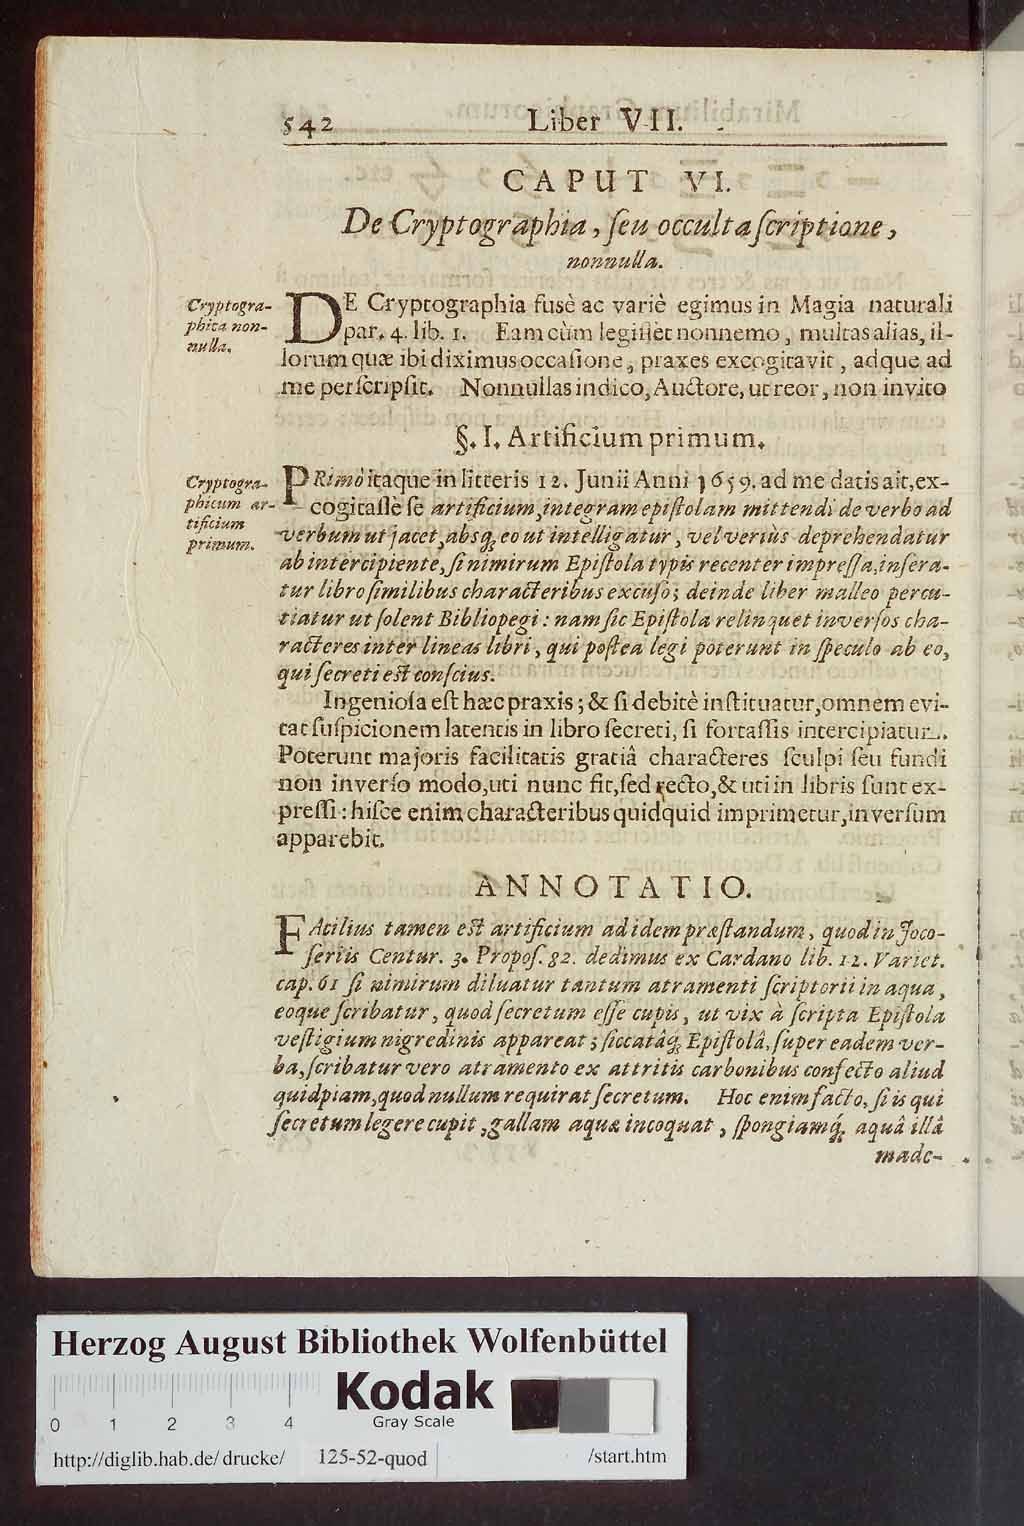 542 Liber VII.
CAPUT VI.
De Cryptographia, ſeu occulta ſcriptione,
nonnulla.
Cryptogra-
phica non-
nulla.
DE Cryptographia fusè ac variè egimus in Magia naturali
par. 4. lib. 1. Eam cùm legiſſet nonnemo, multas alias, il-
lorum quæ ibi diximus occaſione, praxes excogitavit, adque ad
me perſcripſit. Nonnullas indico, Auctore, ut reor, non invito
§. I. Artificium primum.
Cryptogra-
phicum ar-
tificium
primum.
PRimò itaque in litteris 12. Junii Anni 1659. ad me datis ait, ex-
cogitaſſè ſe artificium, integram epiſtolam mittendi de verbo ad
verbum ut jacet, absq; eo ut intelligatur, vel veriùs deprehendatur
ab intercipiente, ſi nimirum Epiſtola typis recenter impreſſa, inſera-
tur libro ſimilibus characteribus excuſo; deinde liber malleo percu-
tiatur ut ſolent Bibliopegi: nam ſic Epiſtola relinquet inverſos cha-
racteres inter lineas libri, qui poſtea legi poterunt in ſpeculo ab eo,
qui ſecreti eſt conſcius.
Ingenioſa eſt hæc praxis; & ſi debitè inſtituatur, omnem evi-
tat ſuſpicionem latentis in libro ſecreti, ſi fortaſſis intercipiatur.
Poterunt majoris facilitatis gratiâ characteres ſculpi ſeu fundi
non inverſo modo, uti nunc fit, ſed recto, & uti in libris ſunt ex-
preſſi: hiſce enim characteribus quidquid imprimetur, inverſum
apparebit.
ANNOTATIO.
FAcilius tamen eſt artificium ad idem præſtandum, quod in Joco-
ſeriis Centur. 3. Propoſ. 82. dedimus ex Cardano lib. 12. Variet.
cap. 61 ſi nimirum diluatur tantum atramenti ſcriptorii in aqua,
eoque ſcribatur, quod ſecretum eſſe cupis, ut vix à ſcripta Epiſtola
veſtigium nigredinis appareat; ſiccatâq; Epiſtolâ, ſuper eadem ver-
ba, ſcribatur vero atramento ex attritis carbonibus confecto aliud
quidpiam, quod nullum requirat ſecretum. Hoc enim facto, ſi is qui
ſecretum legere cupit, gallam aquæ incoquat, ſpongiamq́; aquâ illâ
made-
Herzog August Bibliothek Wolfenbüttel
Kodak
Gray Scale
0 1 2 3 4
http://diglib.hab.de/drucke/ 125-52-quod /start.htm